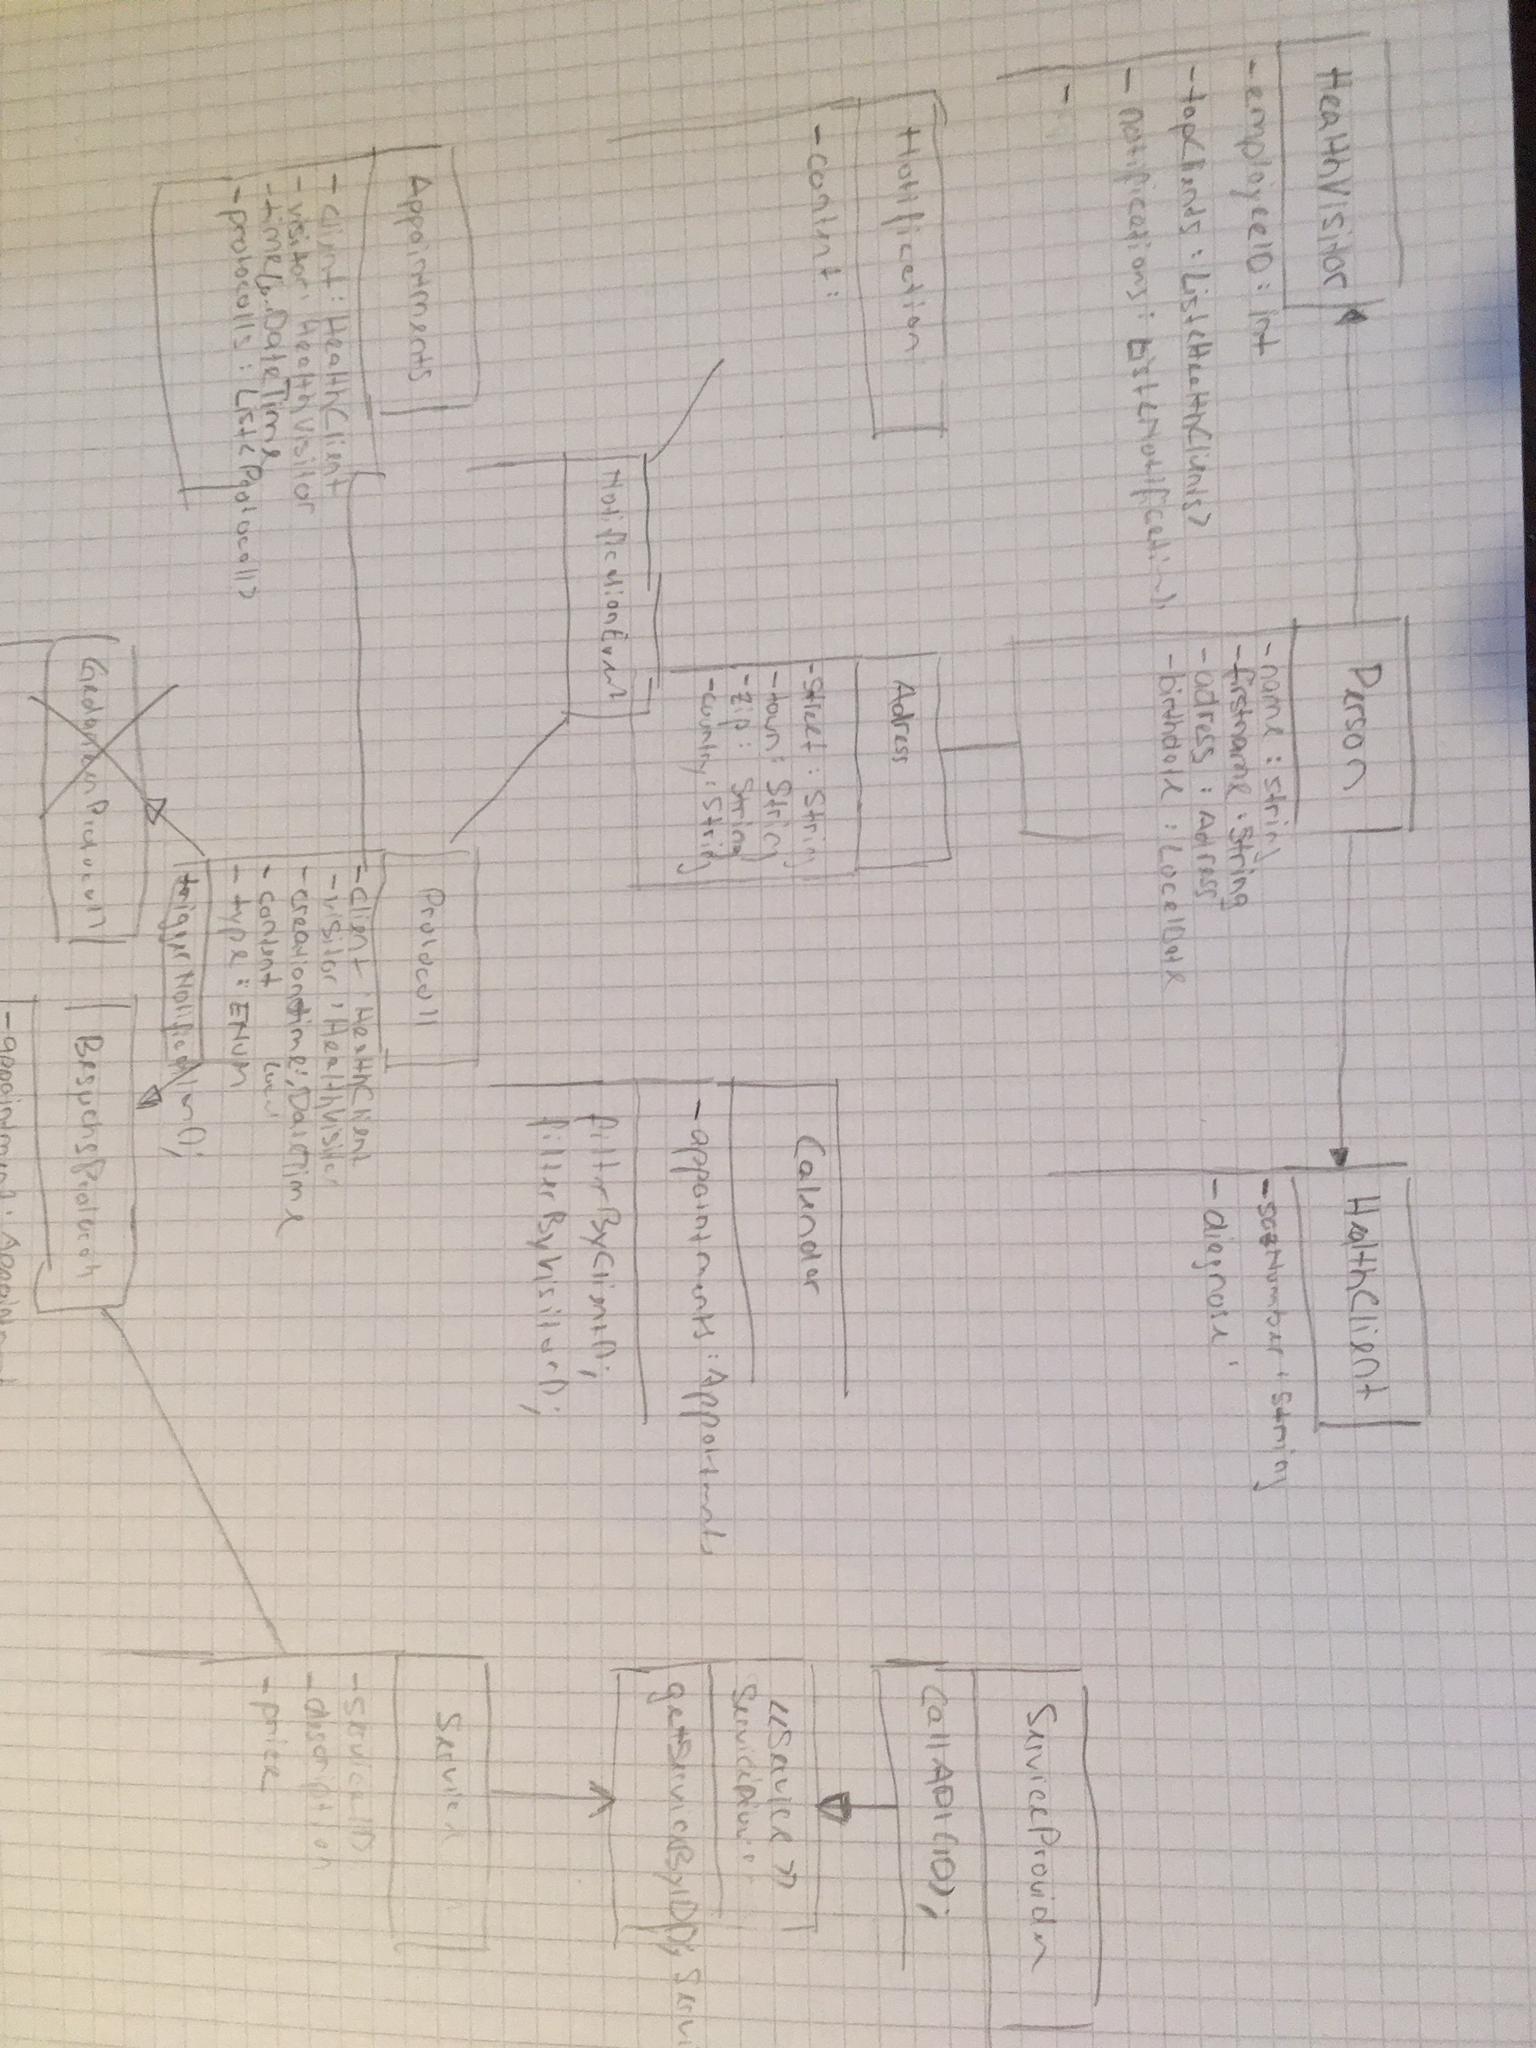 HealthVisitor
-employeeID: int
-topClients: List<HealthClients>
- notifications: List<Notification>
-
Person
-name: String
-firstname: String
-adress: Adress
-birthdate: LocalDate
HealthClient
: String
-diagnose:
ServiceProvider
callAPI(ID);
Notification
-content:
Adress
-street: String
-town: String
-zip: String
-country: String
Calendar
-appointments: Appointments
filterByClient();
filterByVisitor();
<<Service>>
getServiceByID();
NotificationEvent
Appointments
-client: HealthClient
-visitor: HealthVisitor
-time: DateTime
-protocolls: List<Protocoll>
Protocoll
-client: HealthClient
-visitor: HealthVisitor
-creationtime: DateTime
Local
-content
-type: ENUM
triggerNotification();
Service
-serviceID
-description
-price
GedankenProtocoll
BesuchsProtocoll
-appointment: